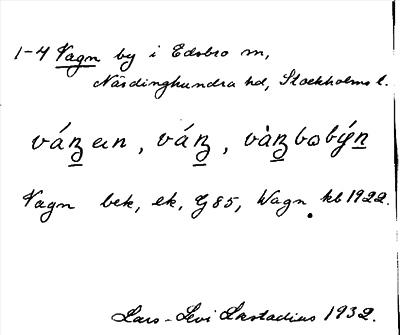 1-4 Vagn by i Edsbro sn,
Närdinghundra hd, Stockholms l.
váŋen, váŋ, vàŋbobýn
Vagn bek, ek, G 85, Wagn kb 1922.
Lars-Levi Læstadius 1932.